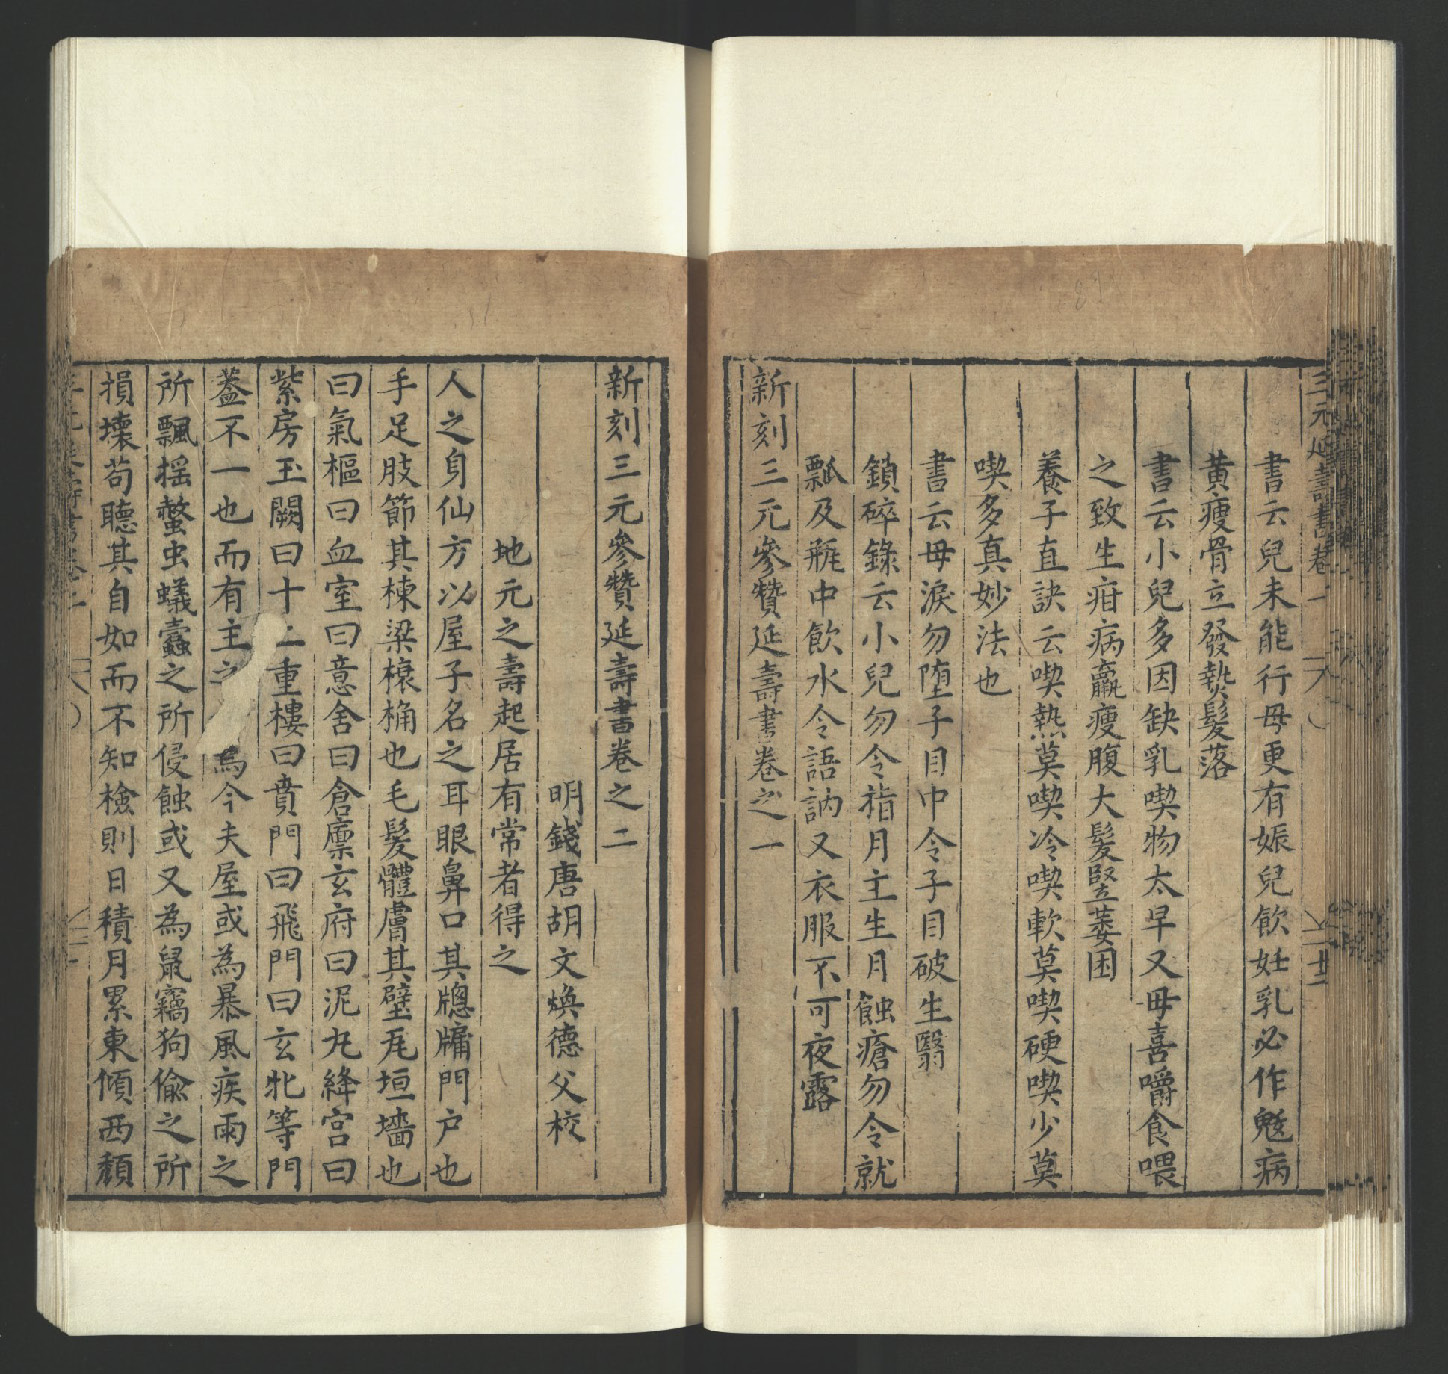 三元延壽書卷一
書云兒未能行母更有娠兒飲妊乳必作魃病
黄瘦骨立發熱髮落
書云小兒多因缺乳喫物太早又母喜嚼食喂
之致生疳病羸瘦腹大髮竪萎困
養子直訣云喫熱莫喫冷喫軟莫喫硬喫少莫
喫多真妙法也
書云母淚勿堕子目中令子目破生翳
鎖碎錄云小兒勿令指月主生月蝕瘡勿令就
瓢及瓶中飲水令語訥又衣服不可夜露
新刻三元參贊延壽書卷之一
新刻三元參贊延壽書卷之二
明錢唐胡文煥德父校
地元之壽起居有常者得之
人之身仙方以屋子名之耳眼鼻口其牕牖門户也
手足肢節其棟梁榱桷也毛髮體膚其壁瓦垣墻也
曰氣樞曰血室曰意舍曰倉廪玄府曰泥丸絳宫曰
紫房玉闕曰十二重樓曰賁門曰飛門曰玄牝等門
葢不一也而有主之焉今夫屋或為暴風疾雨之
所飄揺螫虫蟻蠹之所侵蝕或又為鼠竊狗偷之所
損壊苟聽其自如而不知檢則日積月累東傾西頹